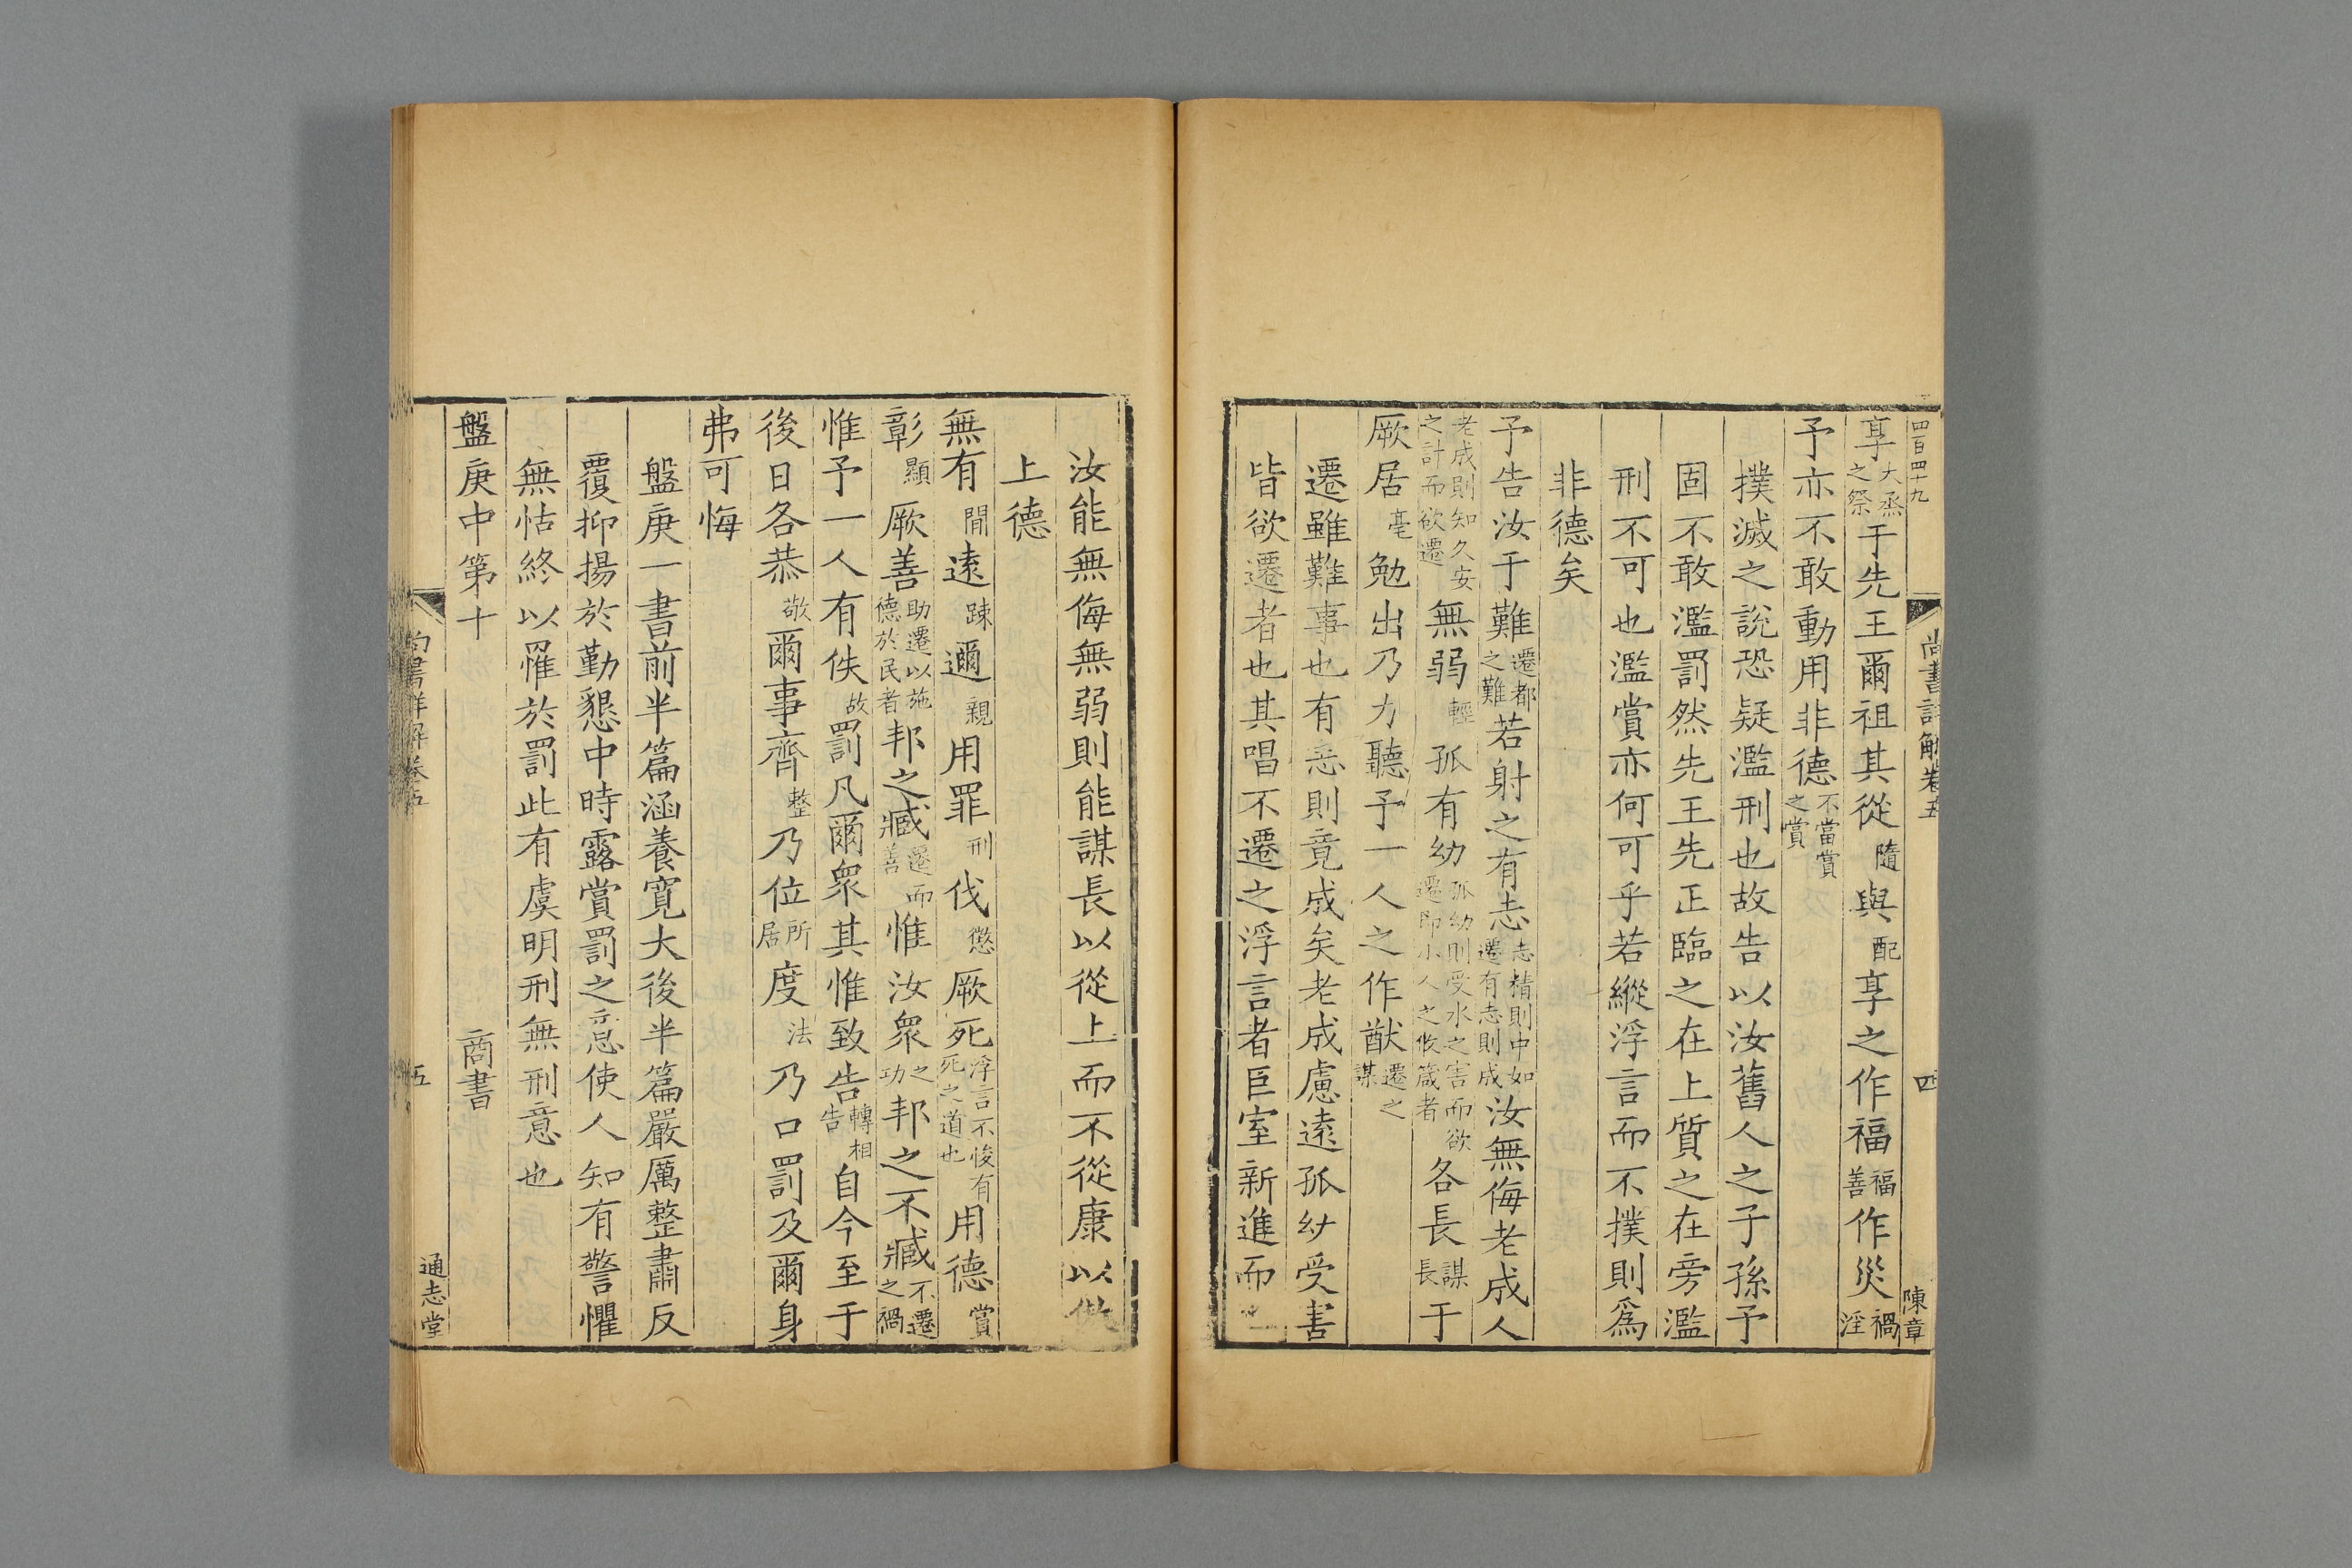 四百四十九
尚書詳解卷五
四
陳章
享大烝之祭于先王爾祖其從隨與配享之作福福善作災禍淫
予亦不敢動用非德不當賞之賞
撲滅之說恐疑濫刑也故告以汝舊人之子孫予
固不敢濫罰然先王先正臨之在上質之在旁濫
刑不可也濫賞亦何可乎若縱浮言而不撲則爲
非德矣
予告汝于難遷都之難若射之有志志精則中如遷有志則成汝無侮老成人
老成則知久安之計而欲遷無弱輕孤有幼孤幼則受水之害而欲遷即小人之攸箴者各長謀長于
厥居亳勉出乃力聽予一人之作猷遷之謀
遷雖難事也有志則竟成矣老成慮遠孤幼受害
皆欲遷者也其唱不遷之浮言者巨室新進而
汝能無侮無弱則能謀長以從上而不從康以
上德
無有間遠踈邇親用罪刑伐懲厥死浮言不悛有死之道也用德賞
彰顯厥善助遷以施德於民者邦之臧遷而善惟汝衆之功邦之不臧不遷之禍
惟予一人有佚故罰凡爾衆其惟致告轉相告自今至于
後日各恭敬爾事齊整乃位所居度法乃口罰及爾身
弗可悔
盤庚一書前半篇涵養寛大後半篇嚴厲整肅反
覆抑揚於勤懇中時露賞罰之意使人知有警懼
無怙終以罹於罰此有虞明刑無刑意也
盤庚中第十
商書
尚書詳解卷五
五
通志堂